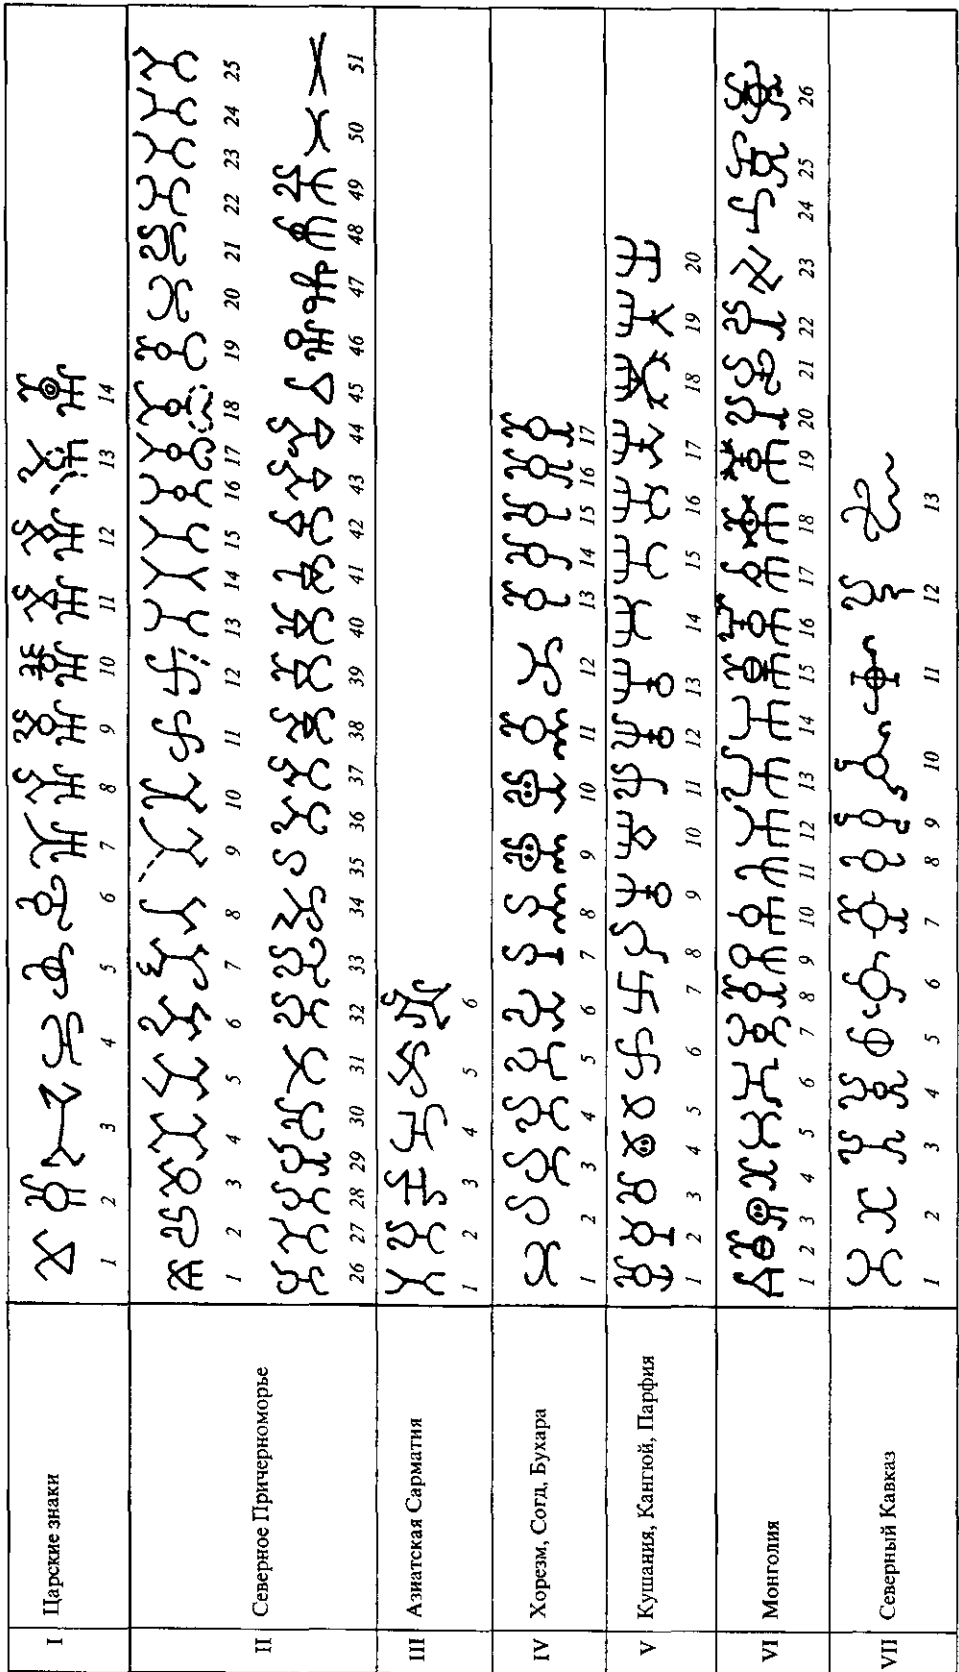 I Царские знаки
1 2 3 4 5 6 7 8 9 10 11 12 13 14
II Северное Причерноморье
1 2 3 4 5 6 7 8 9 10 11 12 13 14 15 16 17 18 19 20 21 22 23 24 25
26 27 28 29 30 31 32 33 34 35 36 37 38 39 40 41 42 43 44 45 46 47 48 49 50 51
III Азиатская Сарматия
1 2 3 4 5 6
IV Хорезм, Согд, Бухара
1 2 3 4 5 6 7 8 9 10 11 12 13 14 15 16 17
V Кушания, Кангюй, Парфия
1 2 3 4 5 6 7 8 9 10 11 12 13 14 15 16 17 18 19 20
VI Монголия
1 2 3 4 5 6 7 8 9 10 11 12 13 14 15 16 17 18 19 20 21 22 23 24 25 26
VII Северный Кавказ
1 2 3 4 5 6 7 8 9 10 11 12 13